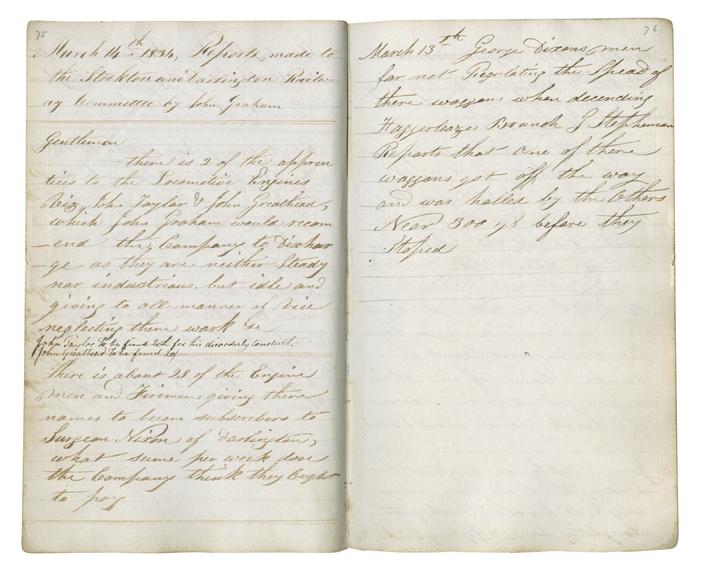 75
March 14th 1834, Reports made to
the Stockton and Darlington Railw
ay Committee by John Graham
Gentlemen
there is 2 of the appren
tices to the Locomotive Engines
Viz, John Taylor & John Greathead,
which John Graham would recom
-end the Company to Dischar
-ge as they are neither Steady
nor industrious, but idle and
giving to all manner of Vice
neglecting there work &c
John Taylor to be fined 20/- for his disorderly conduct.
John Greathead to be fined 20/
There is about 28 of the Engine
men and Firemen giving there
names to become subscribers to
Surgeon Nixon of Darlington,
what sume per week dose
the Company think they Ought
to pay
76
March 13th George Dixons men
for not Regulating the Spead of
there waggons when decending
Haggerleazes Branch J Stephenson
Reports that one of there
waggons got off the way
and was halled by the Others
Near 300 yds before they
Stoped